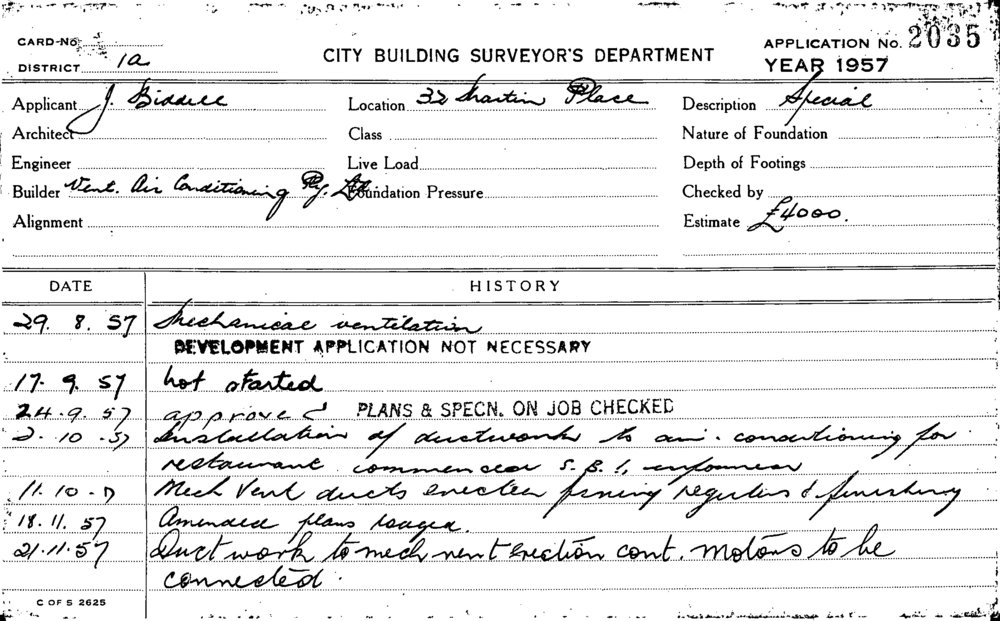 CARD-No.
DISTRICT 1a
CITY BUILDING SURVEYOR'S DEPARTMENT
APPLICATION No. 2035
YEAR 1957
Applicant J. Biddell
Location 32 Martin Place
Description Special
Architect
Class
Nature of Foundation
Engineer
Live Load
Depth of Footings
Builder Vent. Air Conditioning Pty. Ltd
Foundation Pressure
Checked by
Alignment
Estimate £4000.
DATE HISTORY
29. 8. 57 Mechanical ventilation
DEVELOPMENT APPLICATION NOT NECESSARY
17. 9. 57 not started
24.9.57 approved PLANS & SPECN. ON JOB CHECKED
2.10.57 Installation of ductwork to air-conditioning for
restaurant commenced S.B.I.
11.10.7 Mech Vent ducts erected registers & finishing
18.11.57 Amended plans lodged.
21.11.57 Duct work to mech vent erection cont. motors to be
connected.
C OF S 2625